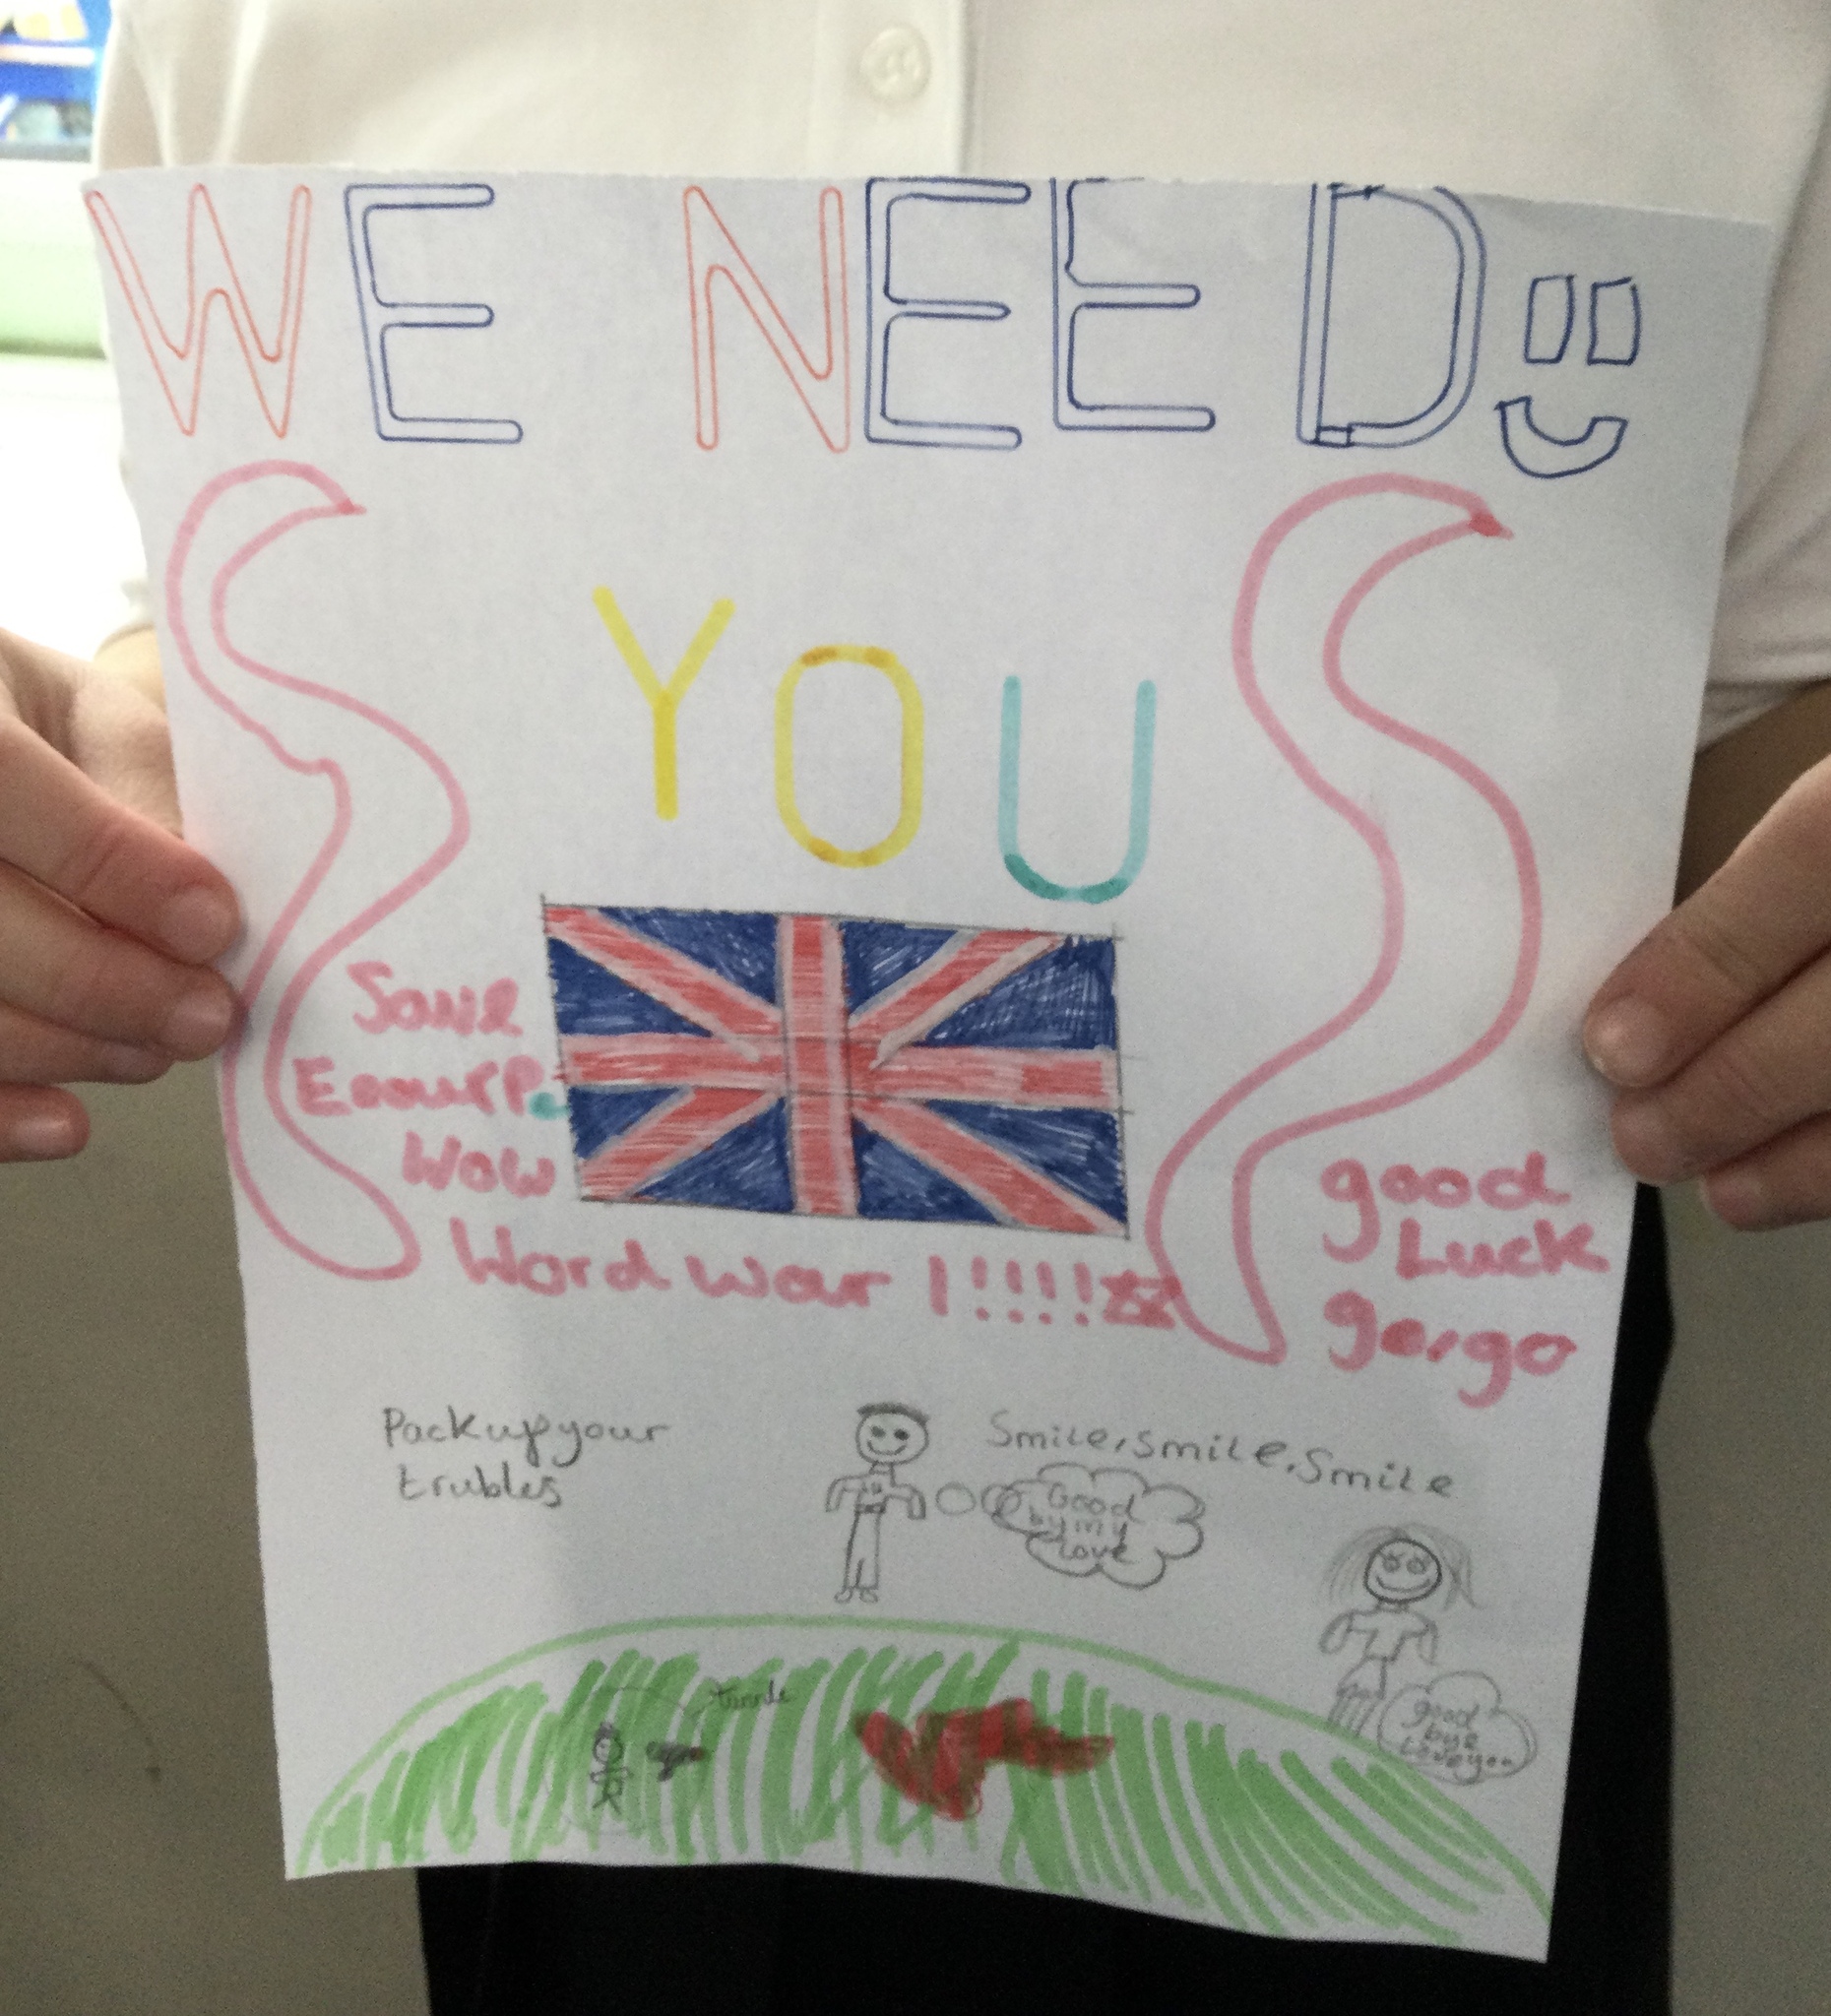 WE NEED
YOU
Save
Eourpe
wow
Word war 1!!!!
good
Luck
go,go
Pack up your
trubles
Smile, smile, smile
Good
by my
love
good
bye
Love you